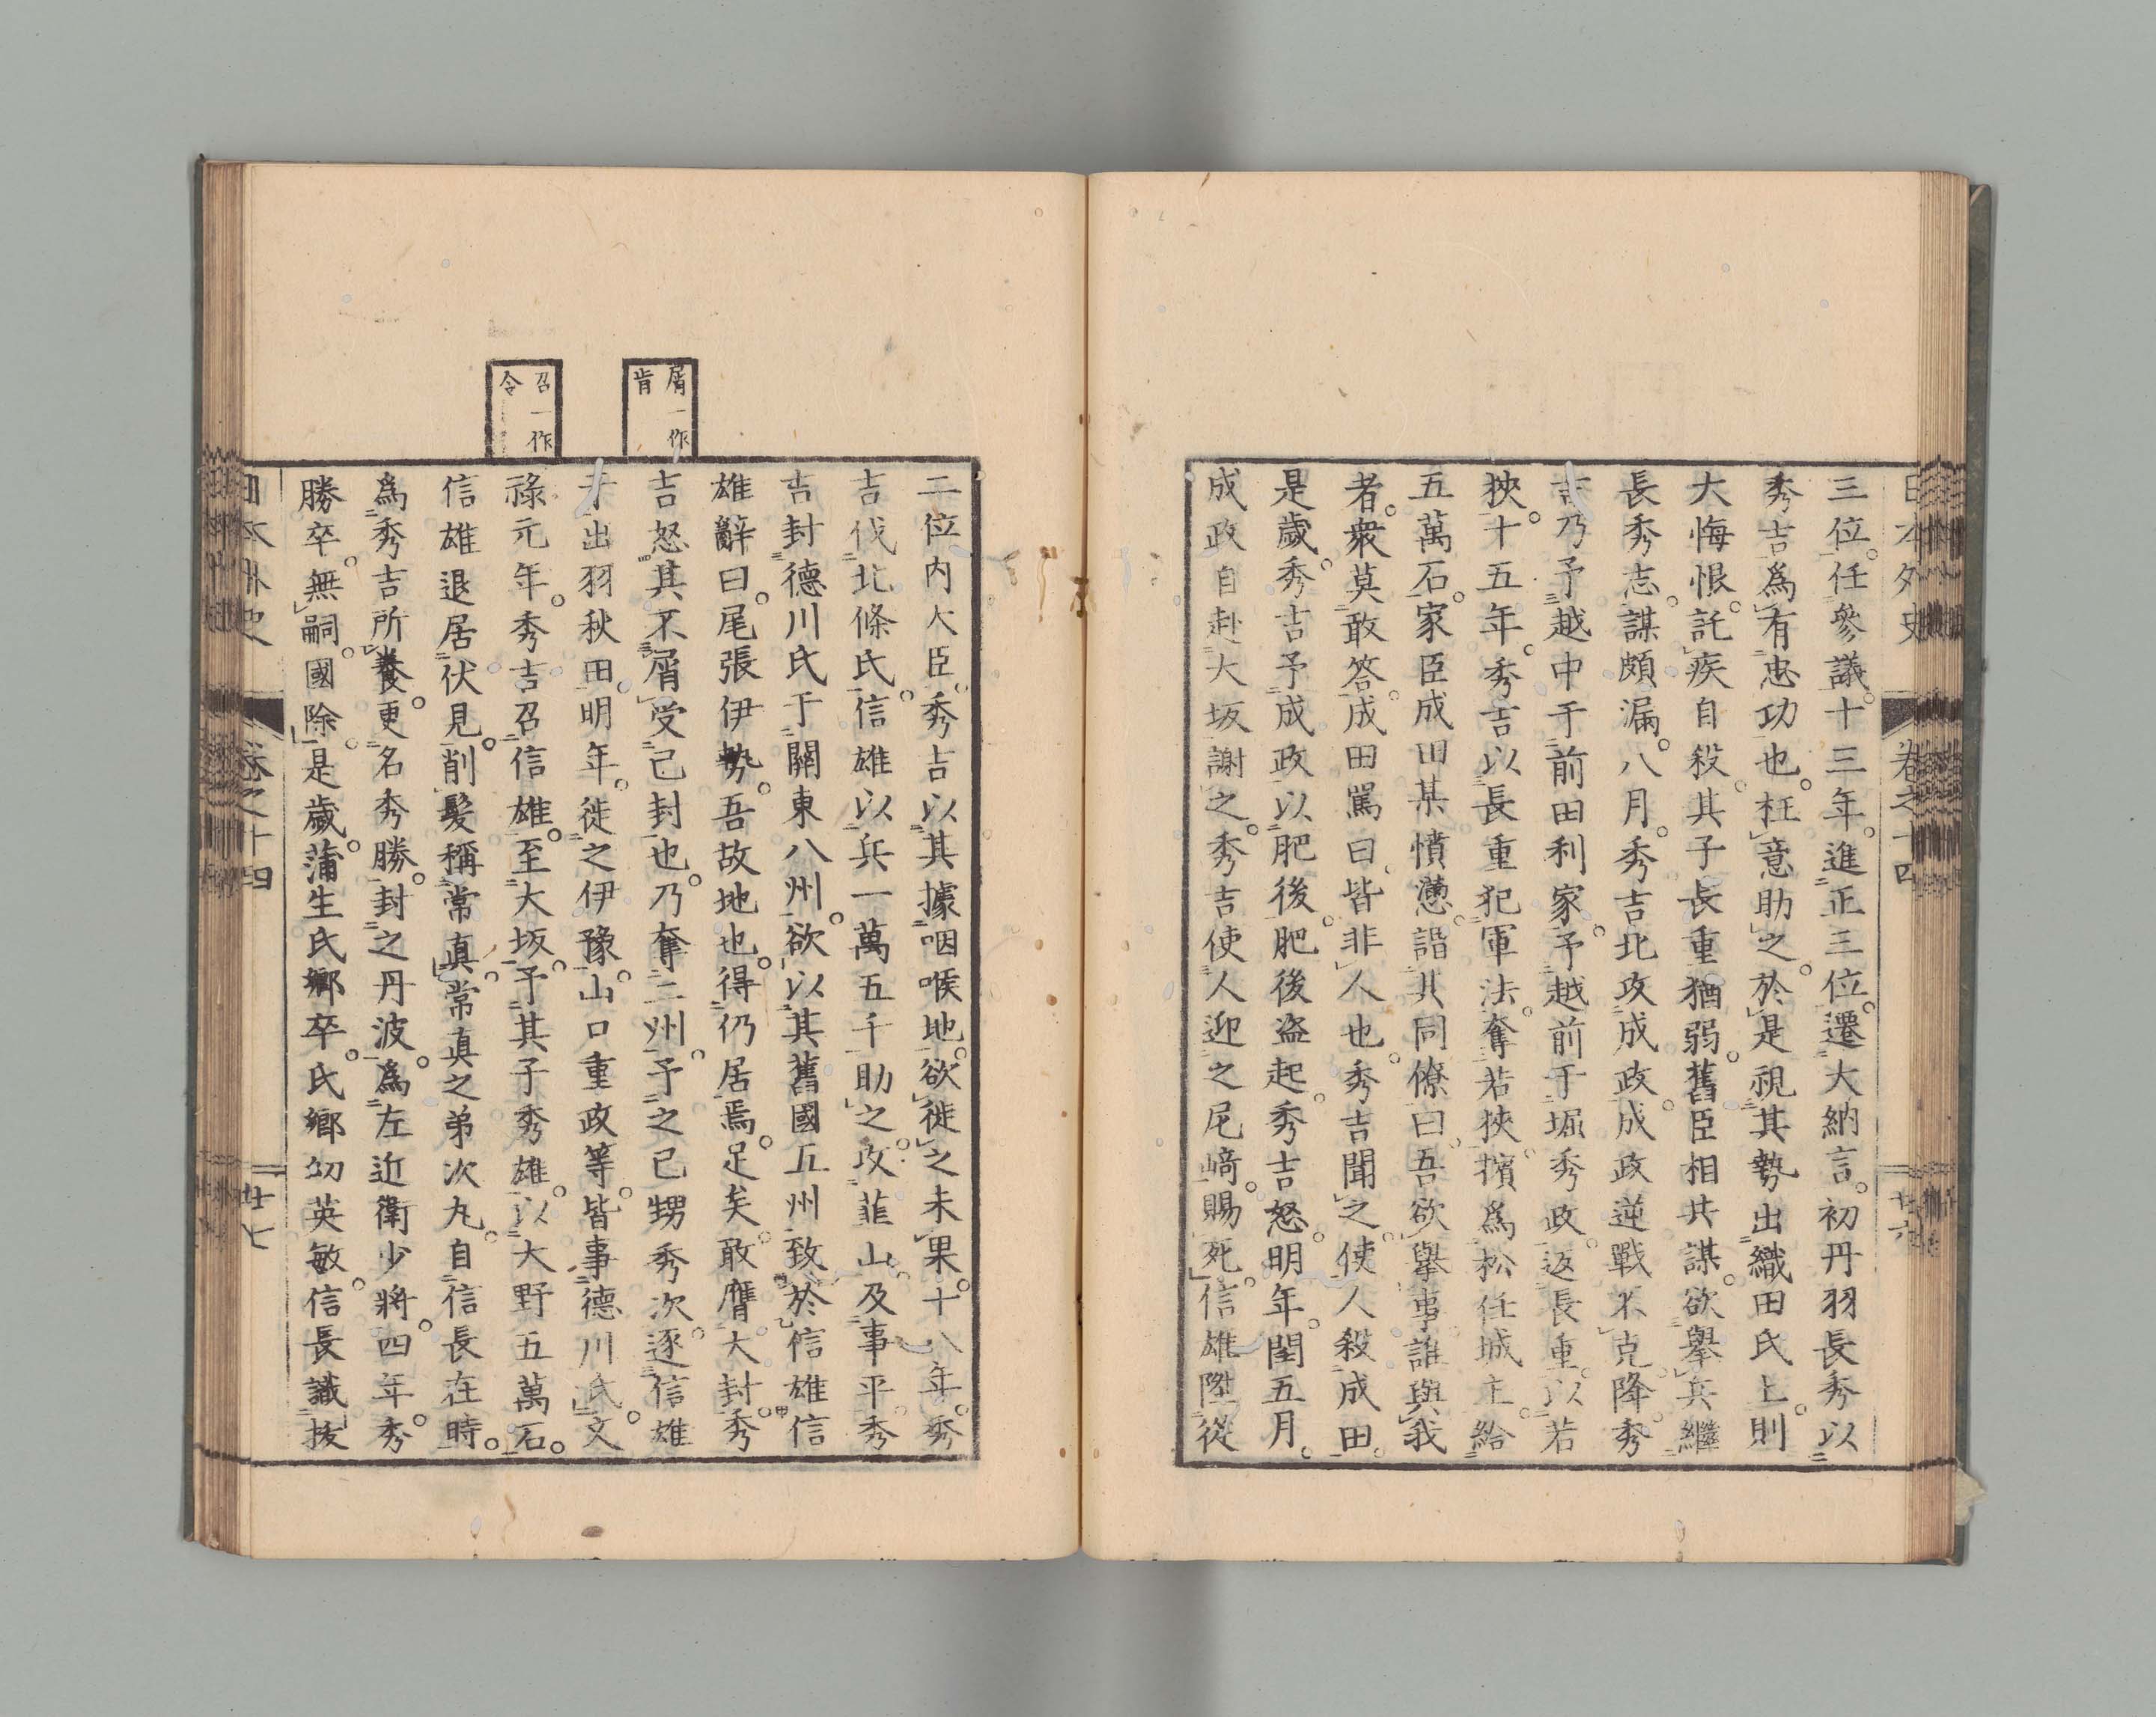 日本外史 卷之十四 廿六
三位。任參議。十三年。進正三位。遷大納言。初丹羽長秀以
秀吉爲有忠功也。枉意助之。於是視其勢出織田氏上。則
大悔恨。託疾自殺。其子長重猶弱。舊臣相共謀。欲擧兵繼
長秀志。謀頗漏。八月。秀吉北攻成政。成政逆戰不克降。秀
吉乃予越中于前田利家。予越前于堀秀政。返長重以若
狹。十五年。秀吉以長重犯軍法。奪若狹。擯爲松任城主。給
五萬石。家臣成田某憤懣。詣其同僚曰。吾欲擧事。誰與我
者。衆莫敢答。成田罵曰。皆非人也。秀吉聞之。使人殺成田。
是歲。秀吉予成政以肥後。肥後盗起。秀吉怒。明年。閏五月。
成政自赴大坂謝之。秀吉使人迎之尼﨑。賜死。信雄陞從
二位内大臣。秀吉以其據咽喉地。欲徙之未果。十八年。秀
吉伐北條氏。信雄以兵一萬五千助之。攻韮山。及事平。秀
吉封德川氏于關東八州。欲以其舊國五州致於信雄。信
雄辭曰。尾張伊勢。吾故地也。得仍居焉。足矣。敢膺大封。秀
吉怒其不屑受己封也。乃奪二州。予之己甥秀次。逐信雄
于出羽秋田。明年。徙之伊豫。山口重政等。皆事德川氏。文
祿元年。秀吉召信雄。至大坂。予其子秀雄。以大野五萬石。
信雄退居伏見。削髮稱常真。常真之弟次丸。自信長在時。
爲秀吉所養。更名秀勝。封之丹波。爲左近衛少將。四年。秀
勝卒。無嗣。國除。是歲。蒲生氏鄉卒。氏鄉幼英敏。信長識拔
屑一作
肯
召一作
令
日本外史 卷之十四 廿七